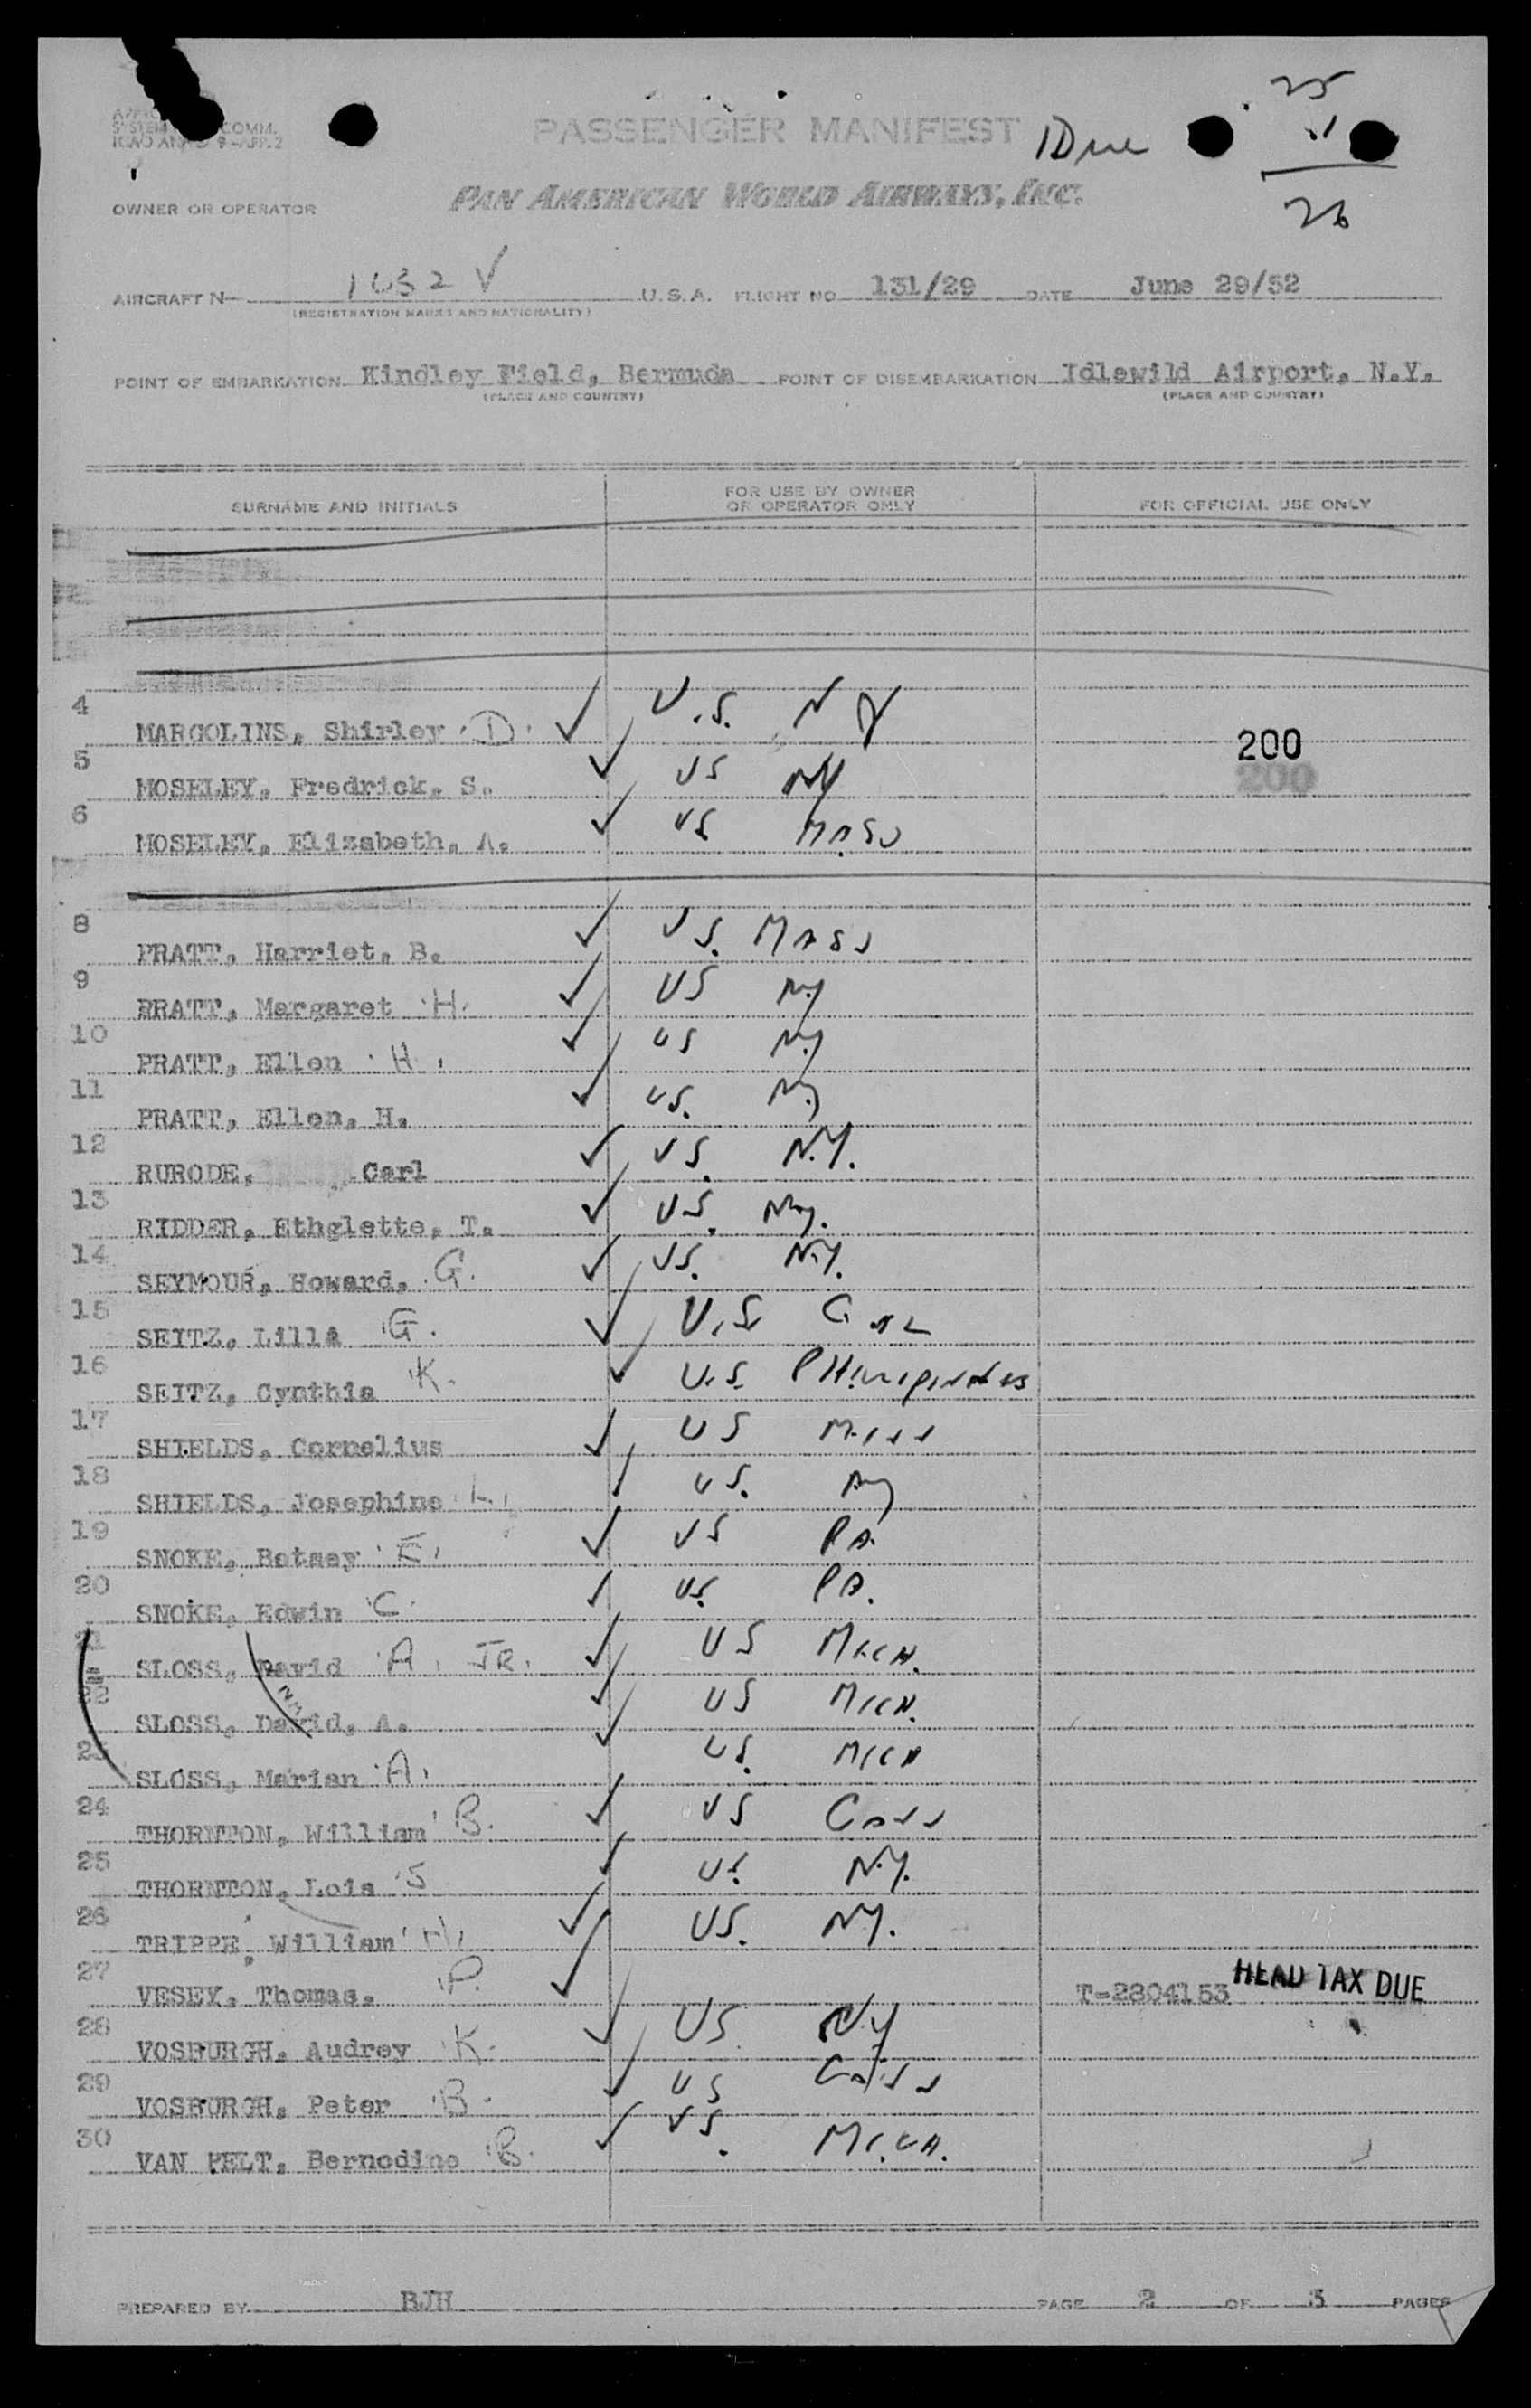 PASSENGER MANIFEST
1 Due
25
.1
26
COMM.
9-APP. 2
OWNER OR OPERATOR
PAN AMERICAN WORLD AIRWAYS, INC.
AIRCRAFT N- 1032 V U.S.A. FLIGHT NO 131/29 DATE June 29/52
(REGISTRATION MARKS AND NATIONALITY)
POINT OF EMBARKATION Kindley Field, Bermuda POINT OF DISEMBARKATION Idlewild Airport, N.Y.
(PLACE AND COUNTRY) (PLACE AND COUNTRY)
SURNAME AND INITIALS FOR USE BY OWNER OR OPERATOR ONLY FOR OFFICIAL USE ONLY
4 MARGOLINS, Shirley D. ✓ U.S. NY 200
5 MOSELEY, Fredrick, S. ✓ US NY 200
6 MOSELEY, Elizabeth, A. ✓ US MASS
8 PRATT, Harriet, B. ✓ US. MASS
9 PRATT, Margaret H. ✓ US NY
10 PRATT, Ellen H. ✓ US NY
11 PRATT, Ellen, H. ✓ US. NY
12 RURODE, Carl ✓ US. N.Y.
13 RIDDER, Ethglette, T. ✓ US. Ny.
14 SEYMOUR, Howard, G. ✓ US. N.Y.
15 SEITZ, Lilla G. ✓ U.S.
16 SEITZ, Cynthia K. ✓ U.S.
17 SHIELDS, Cornelius ✓ US
18 SHIELDS, Josephine L. ✓ US. Ny
19 SNOKE, Betsey E. ✓ US PA.
20 SNOKE, Edwin C. ✓ US. PA.
21 SLOSS, David A. JR. ✓ US MICH.
22 SLOSS, David, A. ✓ US MICH.
23 SLOSS, Marian A. ✓ US. MICH
24 THORNTON, William B. ✓ US
25 THORNTON, Lois S ✓ US. N.Y.
26 TRIPPE, William H. ✓ US. N.Y.
27 VESEY, Thomas. P. ✓ T-2804153 HEAD TAX DUE
28 VOSBURGH, Audrey K. ✓ US. N.Y
29 VOSBURGH, Peter B. ✓ US
30 VAN PELT, Bernodine B. ✓ US. MICH.
PREPARED BY BJH PAGE 2 OF 3 PAGES